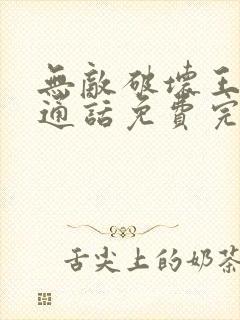 無敵破壞王
通話免費完
舌尖上的奶茶